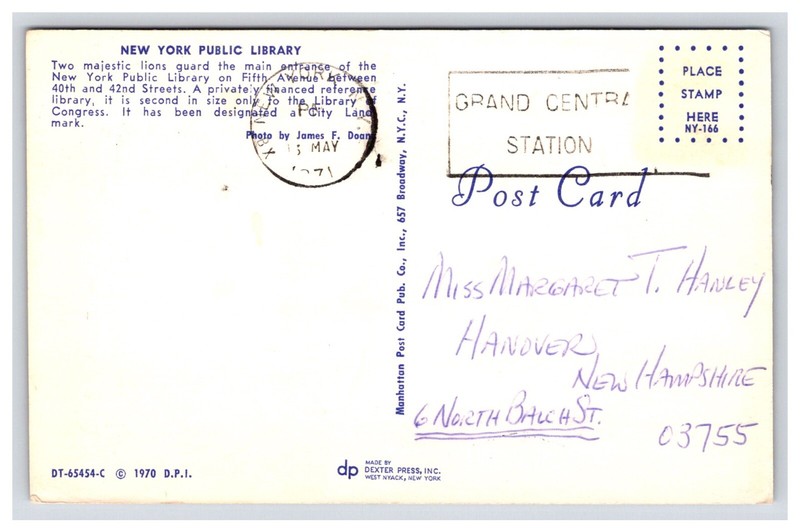 NEW YORK PUBLIC LIBRARY
Two majestic lions guard the main entrance of the
New York Public Library on Fifth Avenue between
40th and 42nd Streets. A privately financed reference
library, it is second in size only to the Library of
Congress. It has been designated a City Land
mark.
Photo by James F. Doane
NEW YORK, N.Y.
PM
13 MAY
1971
GRAND CENTRAL
STATION
PLACE
STAMP
HERE
NY-166
Post Card
Manhattan Post Card Pub. Co., Inc., 657 Broadway, N.Y.C., N.Y.
MISS MARGARET T. HANLEY
HANOVER,
NEW HAMPSHIRE
6 NORTH BALCH ST.
03755
DT-65454-C © 1970 D.P.I.
dp
MADE BY
DEXTER PRESS, INC.
WEST NYACK, NEW YORK